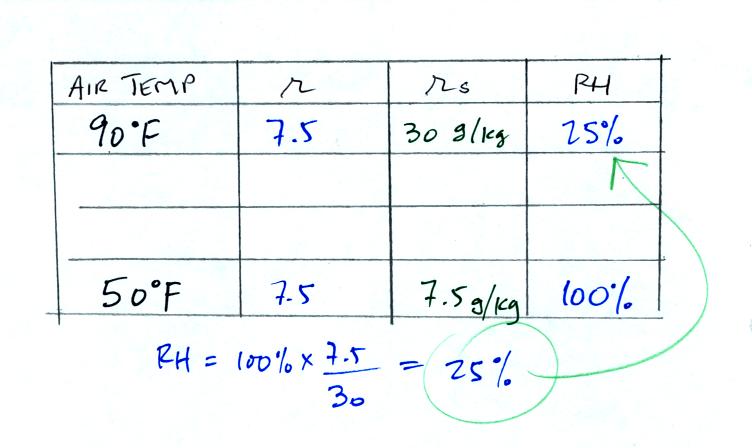 AIR TEMP r rs RH
90°F 7.5 30 g/kg 25%
50°F 7.5 7.5 g/kg 100%
RH = 100% x 7.5/30 = 25%